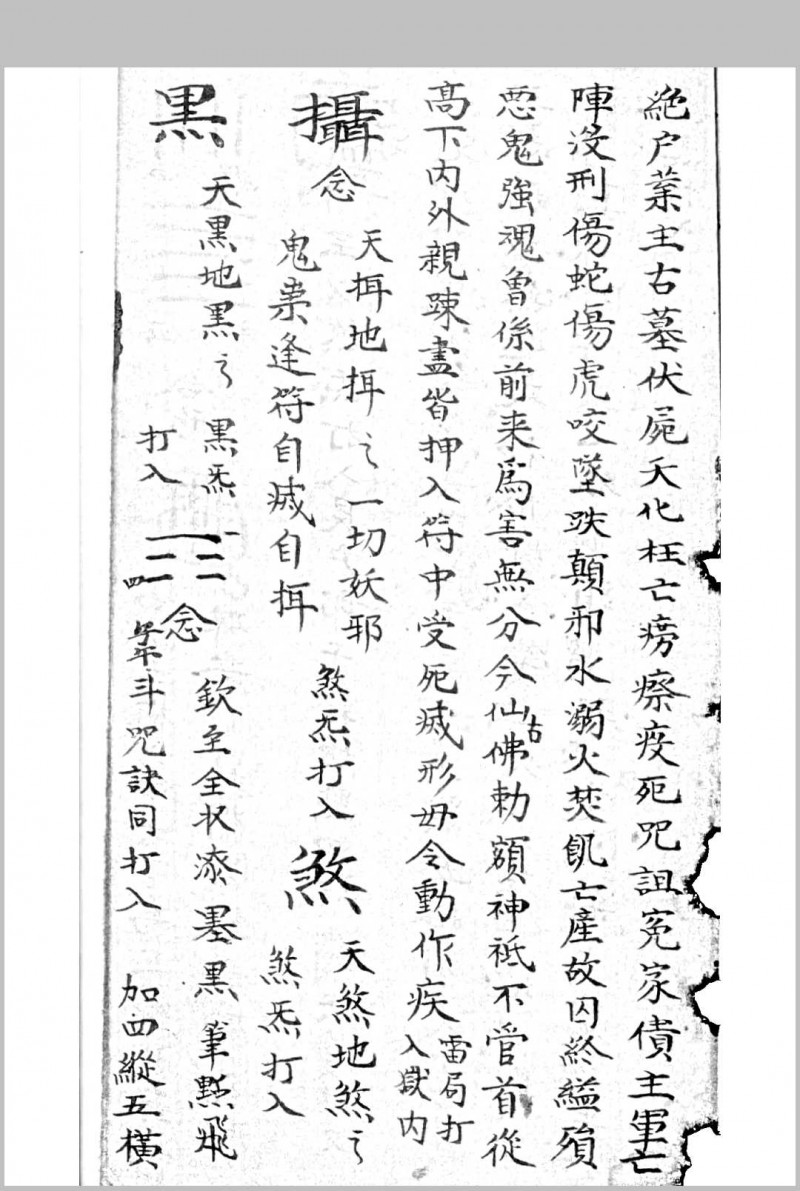 絶户業主古墓伏屍夭化枉亡癆瘵疫死咒詛冤家債主軍亡
陣没刑傷蛇傷虎咬墜跌顛邪水溺火焚飢亡産故囚終縊殞
恶鬼強魂曾係前来爲害無分今仙古佛勅額神祇不管首從
高下内外親踈盡皆押入符中受死滅形毋令動作疾
雷局打
入獄内
攝念
天㨑地㨑之一切妖邪
鬼祟逢符自滅自㨑
煞炁打入
煞
天煞地煞之
煞炁打入
黒
天黒地黒之 黒炁
打入
念
欽至全状漆墨黒筆㸃飛
斗咒訣同打入 加四縱五横